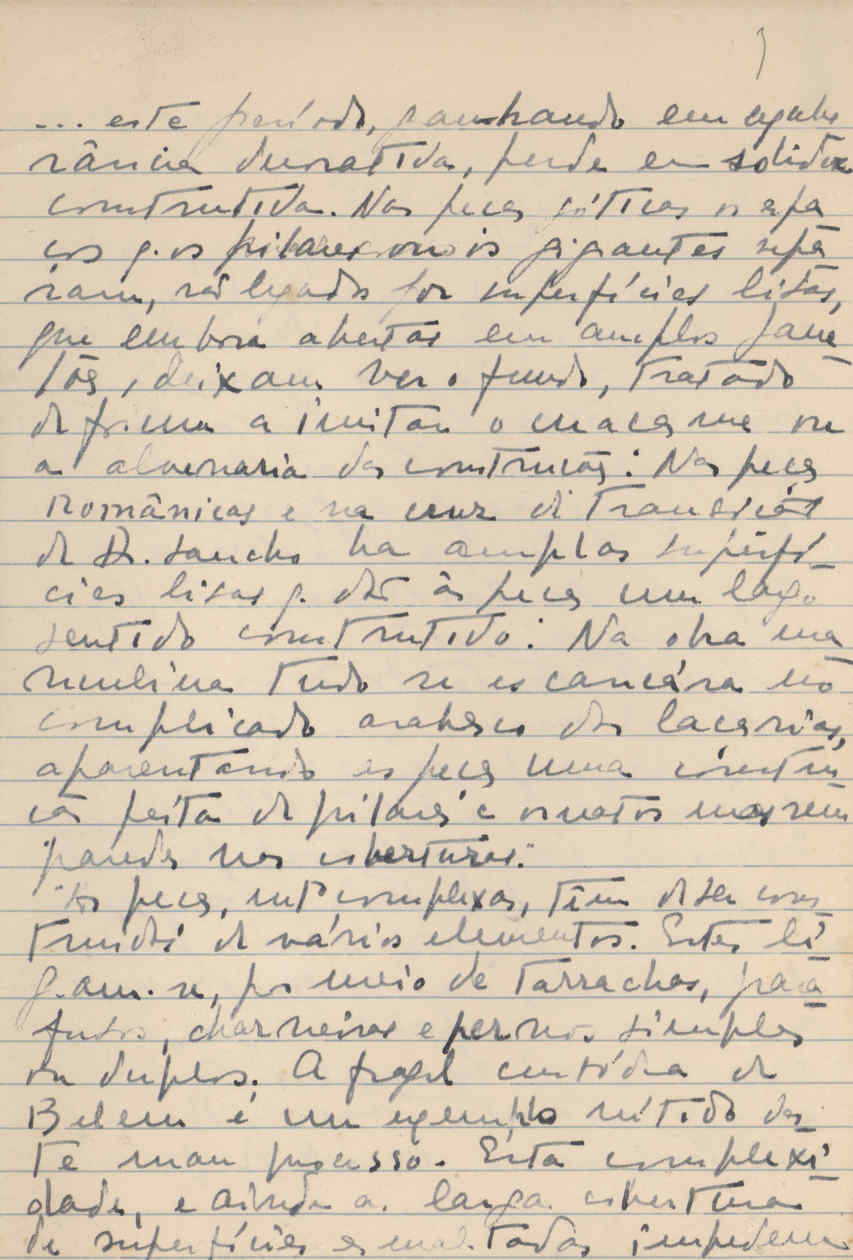 ... este período, ganhando em exube
rância decorativa, perde em solidez
construtiva. Nas peças góticas os espa
ços q. os pilares ou os gigantes sepa
ram, são ligados por superfícies lisas,
que embora abertas em amplos jane
lões, deixam ver o fundo, tratado
de forma a imitar o ou
a alvenaria das construções: Nas peças
Românicas e na cruz de transição
de D. Sancho ha amplas superfí-
cies lisas q. dão às peças um
sentido construtivo: Na obra ma
nuelina tudo se escancára no
complicado arabesco das laçarias,
aparentando as peças uma constru
ção feita de pilares e ornatos mas sem
paredes nas coberturas:
"As peças, mtº complexas, têm de ser cons
truidas de vários elementos. Estes li
gam-se, por meio de tarrachas, para
fusos, charneiras e pernos simples
ou duplos. A fragil custódia de
Belem é um exemplo nítido des
te mau processo. Esta complexi
dade, e ainda a larga cobertura
de superfícies esmaltadas impedem